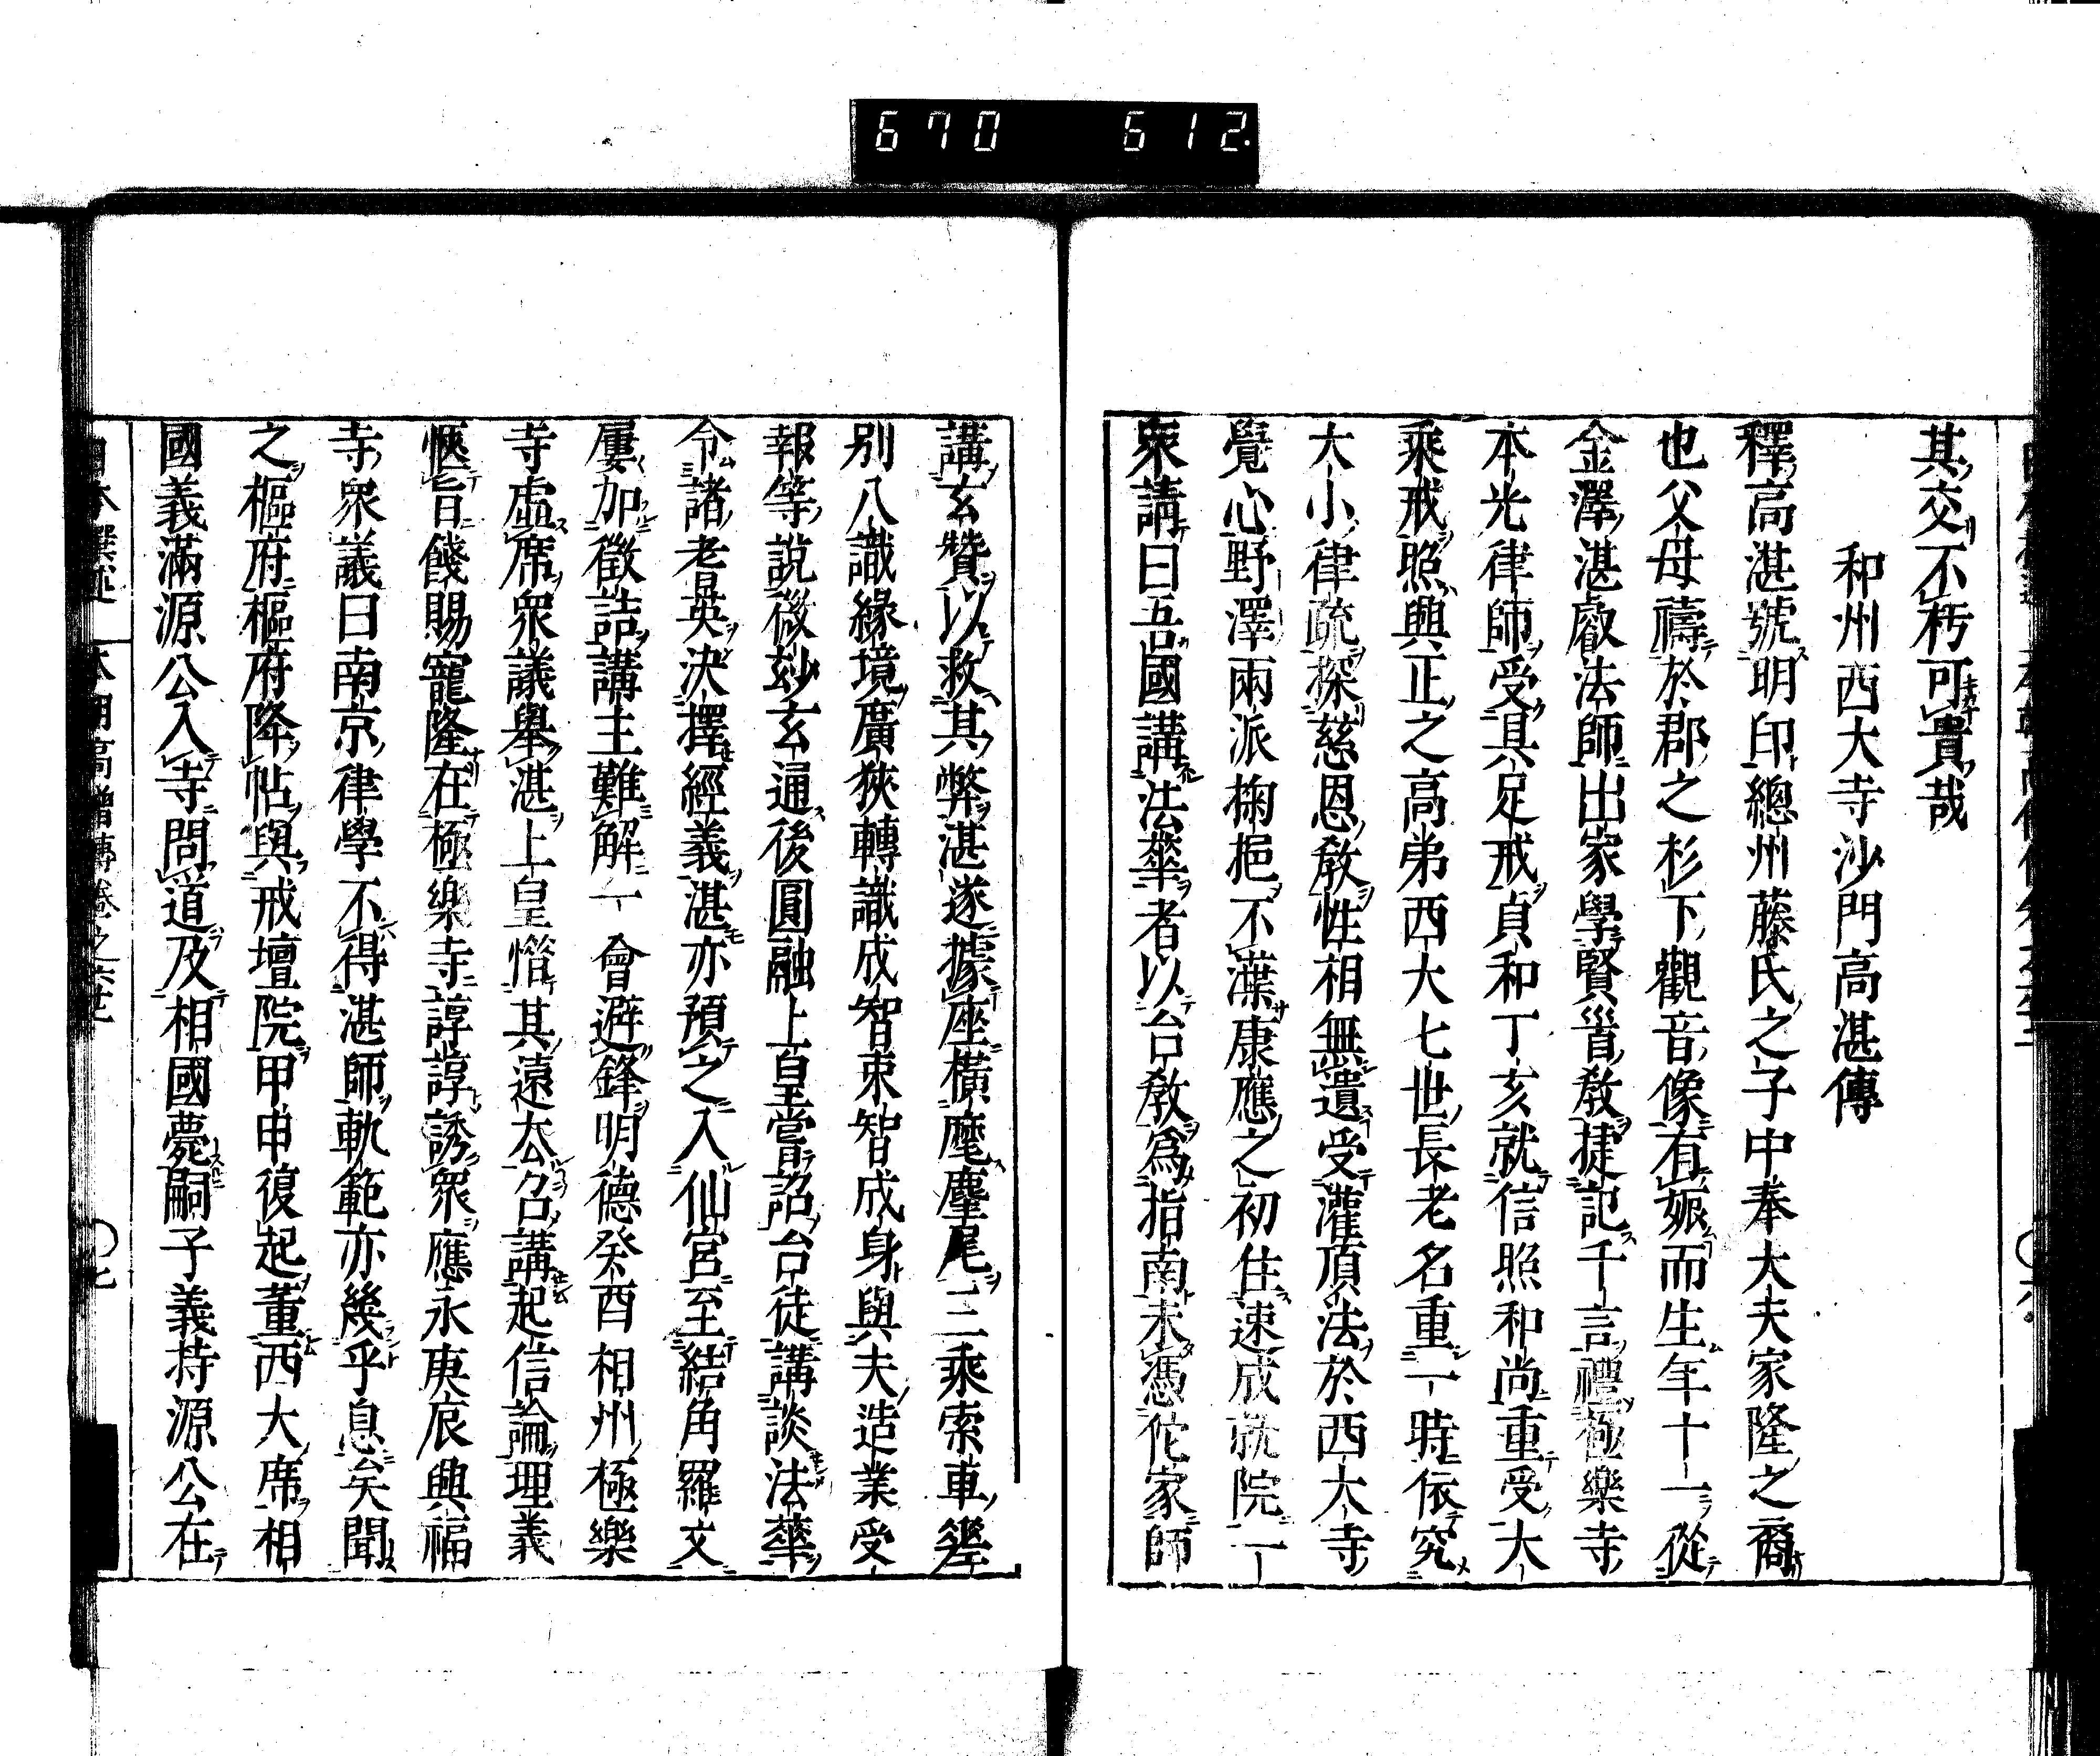 670 612.
其交不朽可貴哉
和州西大寺沙門高湛傳
釋高湛號明印總州藤氏之子中奉大夫家隆之裔
也父母禱於郡之杉下觀音像有娠而生年十一從
金澤湛叡法師出家學賢首教捷記千言禮極樂寺
本光律師受具足戒貞和丁亥就信照和尚重受大
乘戒照興正之高弟西大七世長老名重一時依究
大小律疏探慈恩教性相無遺受灌頂法於西大寺
覺心野澤兩派掬挹不薻康應之初住速成就院一
衆請曰吾國講法華者以台教爲指南未憑佗家師
講玄贊以救其弊湛遂據座橫麾麈尾三乘索車
別八識緣境廣狹轉識成智束智成身與夫造業受
報等說微妙玄通後圓融上皇嘗詔台徒講談法華
令諸老英決擇經義湛亦預之入仙宮至結角羅文
屢加徵詰講主難解一會避鋒明德癸酉相州極樂
寺虛席衆議舉湛上皇惜其遠去召講起信論理義
愜旨餞賜寵隆在極樂寺諄諄誘衆應永庚辰興福
寺衆議曰南京律學不得湛師軌範亦幾乎息矣聞
之樞府樞府降帖與戒壇院甲申復起董西大席相
國義滿源公入寺問道及相國薨嗣子義持源公在
日本撰述 本朝高僧傳卷之六十 〇七